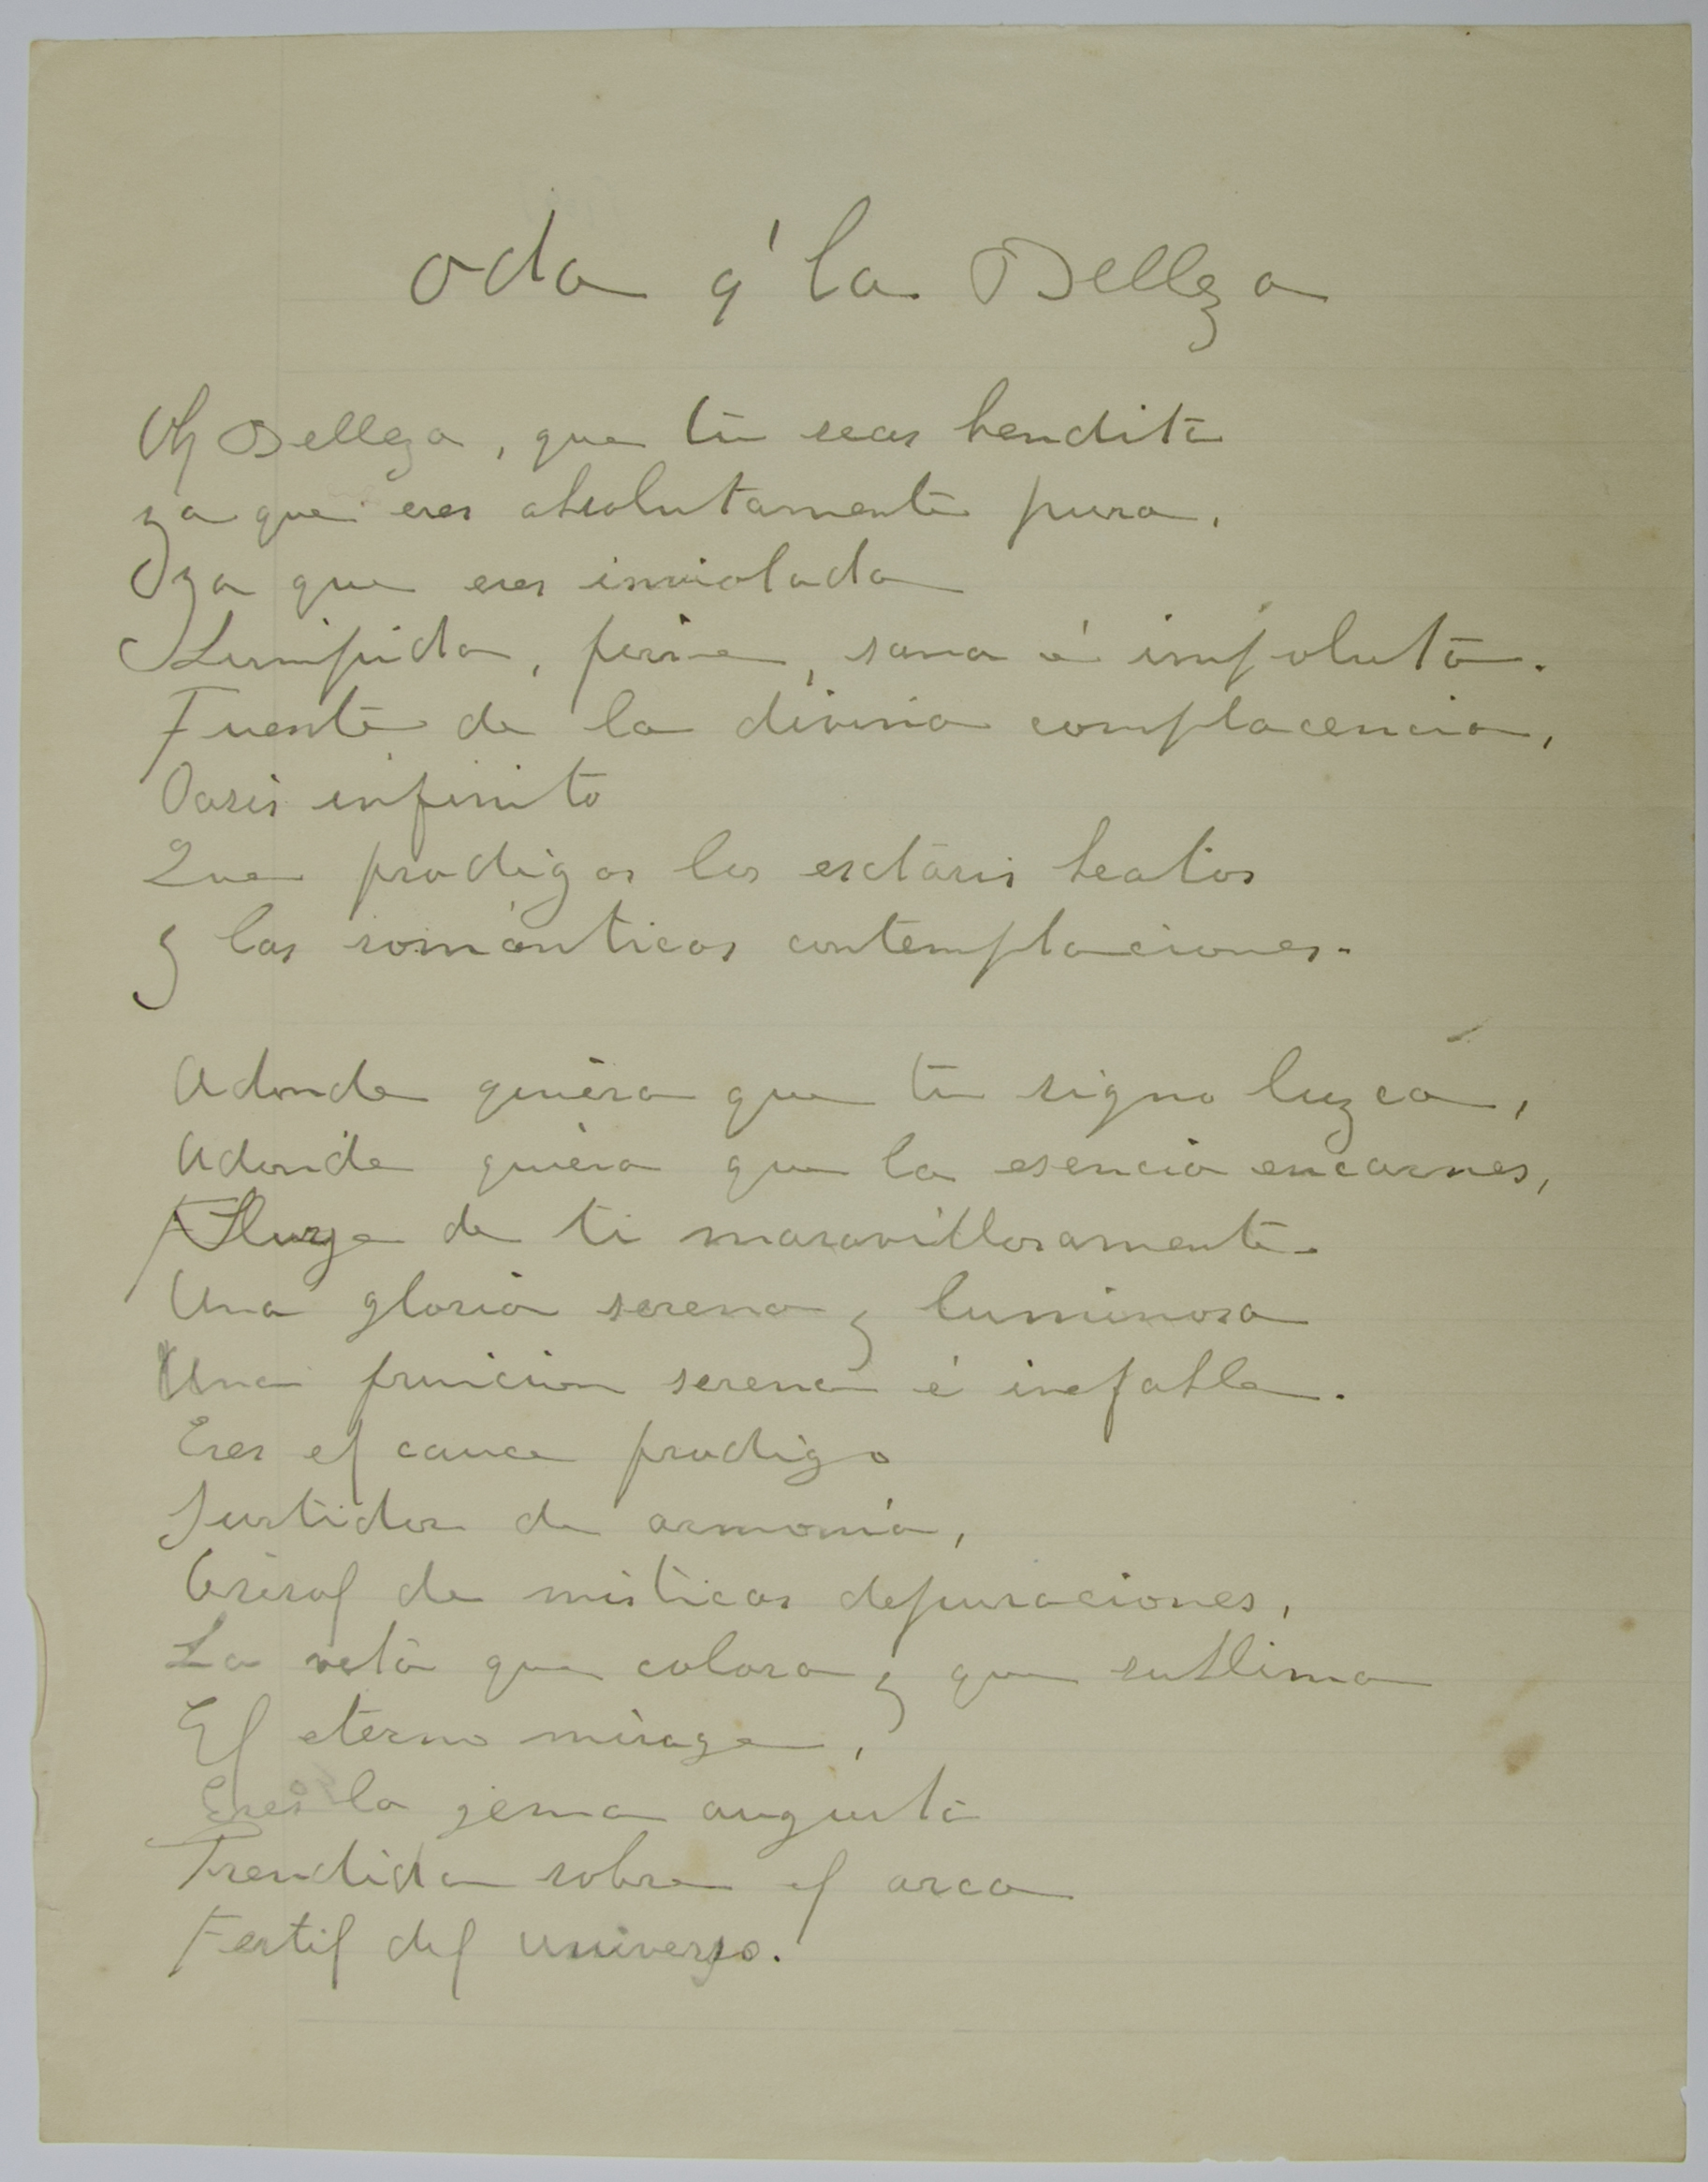 Oda á la Belleza
Oh Belleza, que tu seas bendita
ya que eres absolutamente pura,
ya que eres inviolada
Limpida, firme, sana é impoluta.
Fuente de la divina complacencia,
Oasis infinito
Que prodigas los extasis beatos
y las románticas contemplaciones.
Adonde quiera que tu signo luzca,
Adonde quiera que la esencia encarnes,
Fluye de ti maravillosamente
Una gloria serena y luminosa
Una fruicion serena é inefable.
Eres el cauce prodigo
Surtidor de armonia,
Crisol de misticas depuraciones,
La veta que colora y que sublima
El eterno mirage,
Eres la gema augusta
Prendida sobre el arca
Fertil del universo.